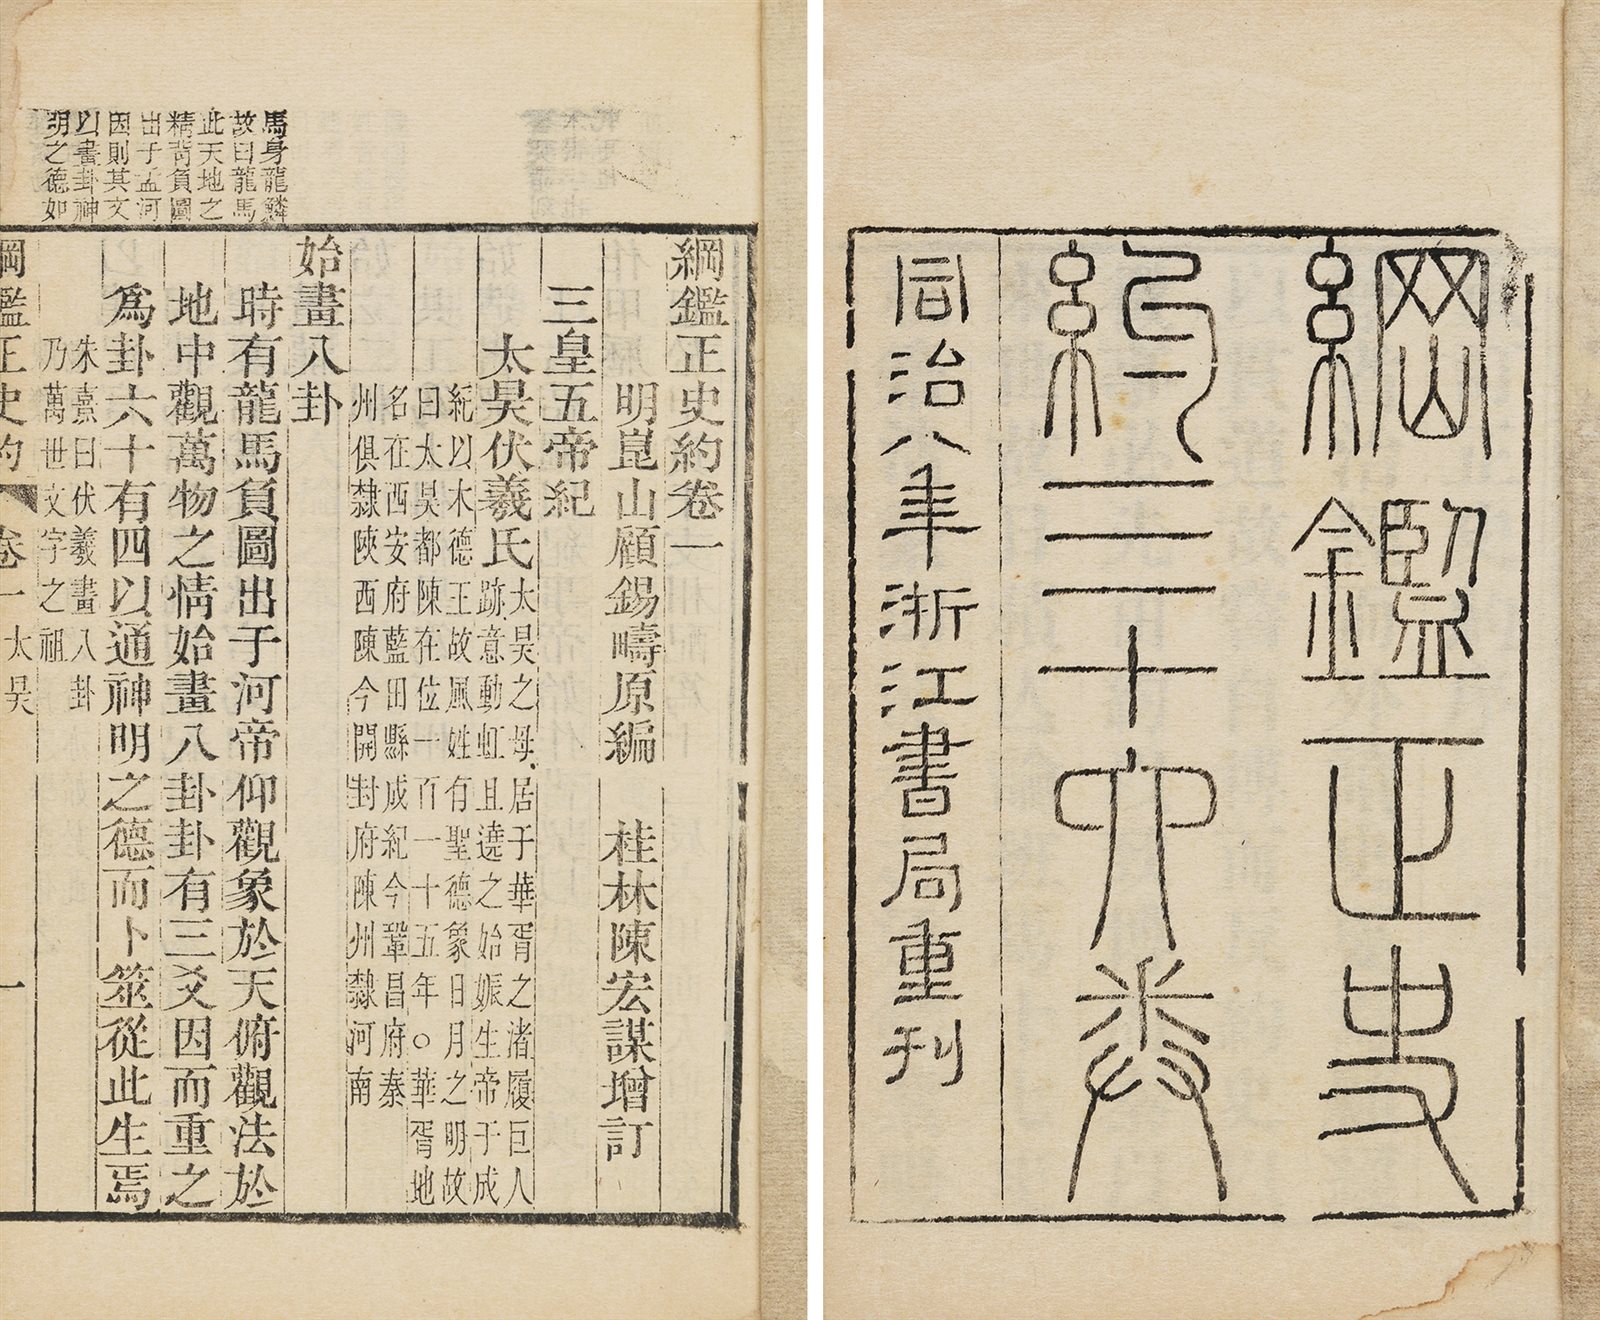 綱鑑正史
約三十六卷
同治八年浙江書局重刊
綱鑑正史約卷一
明崑山顧錫疇原編 桂林陳宏謀增訂
三皇五帝紀
太昊伏羲氏 太昊之母居于華胥之渚履巨人
跡意動虹且遶之始娠生帝于成
紀以木德王故風姓有聖德象日月之明故
曰太昊都陳在位一百一十五年○華胥地
名在西安府藍田縣成紀今鞏昌府秦
州俱隸陝西陳今開封府陳州隸河南
始畫八卦
馬身龍鱗
故曰龍馬
此天地之
精背負圖
出于孟河
因則其文
以畫卦神
明之德如
時有龍馬負圖出于河帝仰觀象於天俯觀法於
地中觀萬物之情始畫八卦卦有三爻因而重之
爲卦六十有四以通神明之德而卜筮從此生焉
朱熹曰伏羲畫八卦
乃萬世文字之祖
綱鑑正史約 卷一 太昊 一